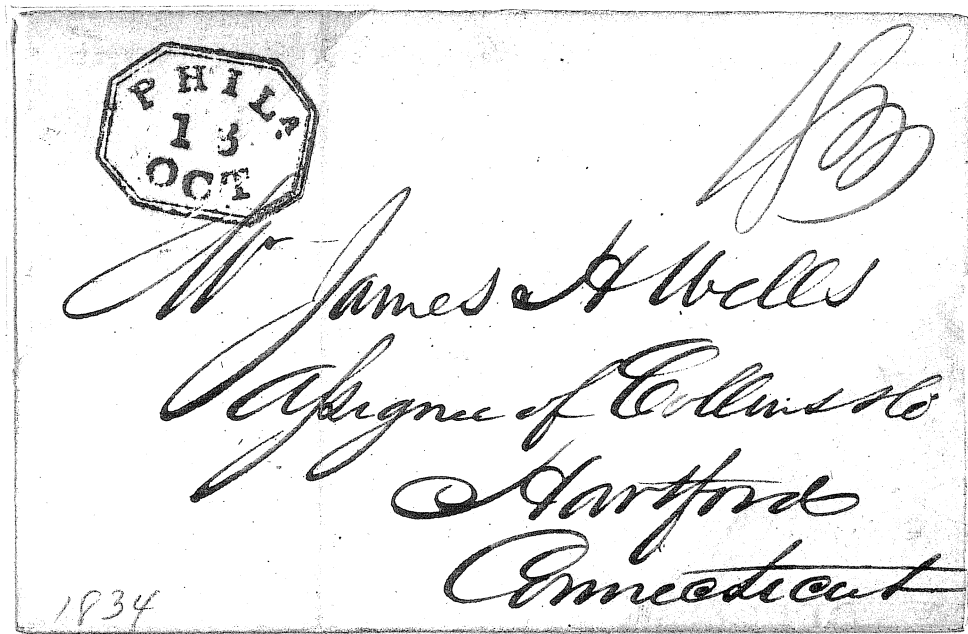 PHILA.
13
OCT
Mr James H Wells
Assignee of Collins & Co
Hartford
Connecticut
1834